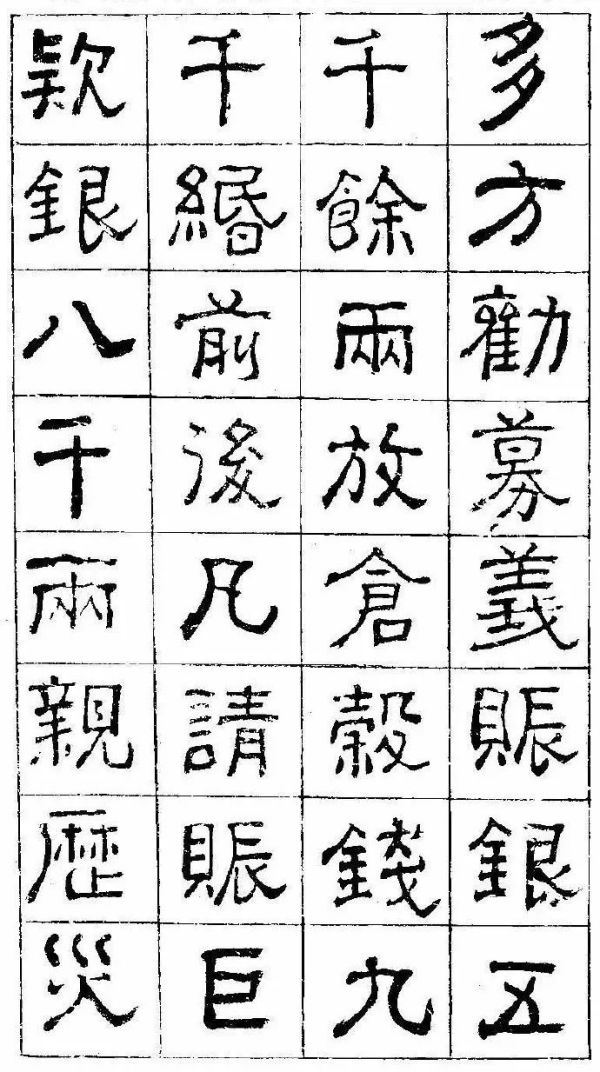 多方勸募義賑銀五
千餘兩放倉穀錢九
千緡前後凡請賑巨
款銀八千兩親歷災